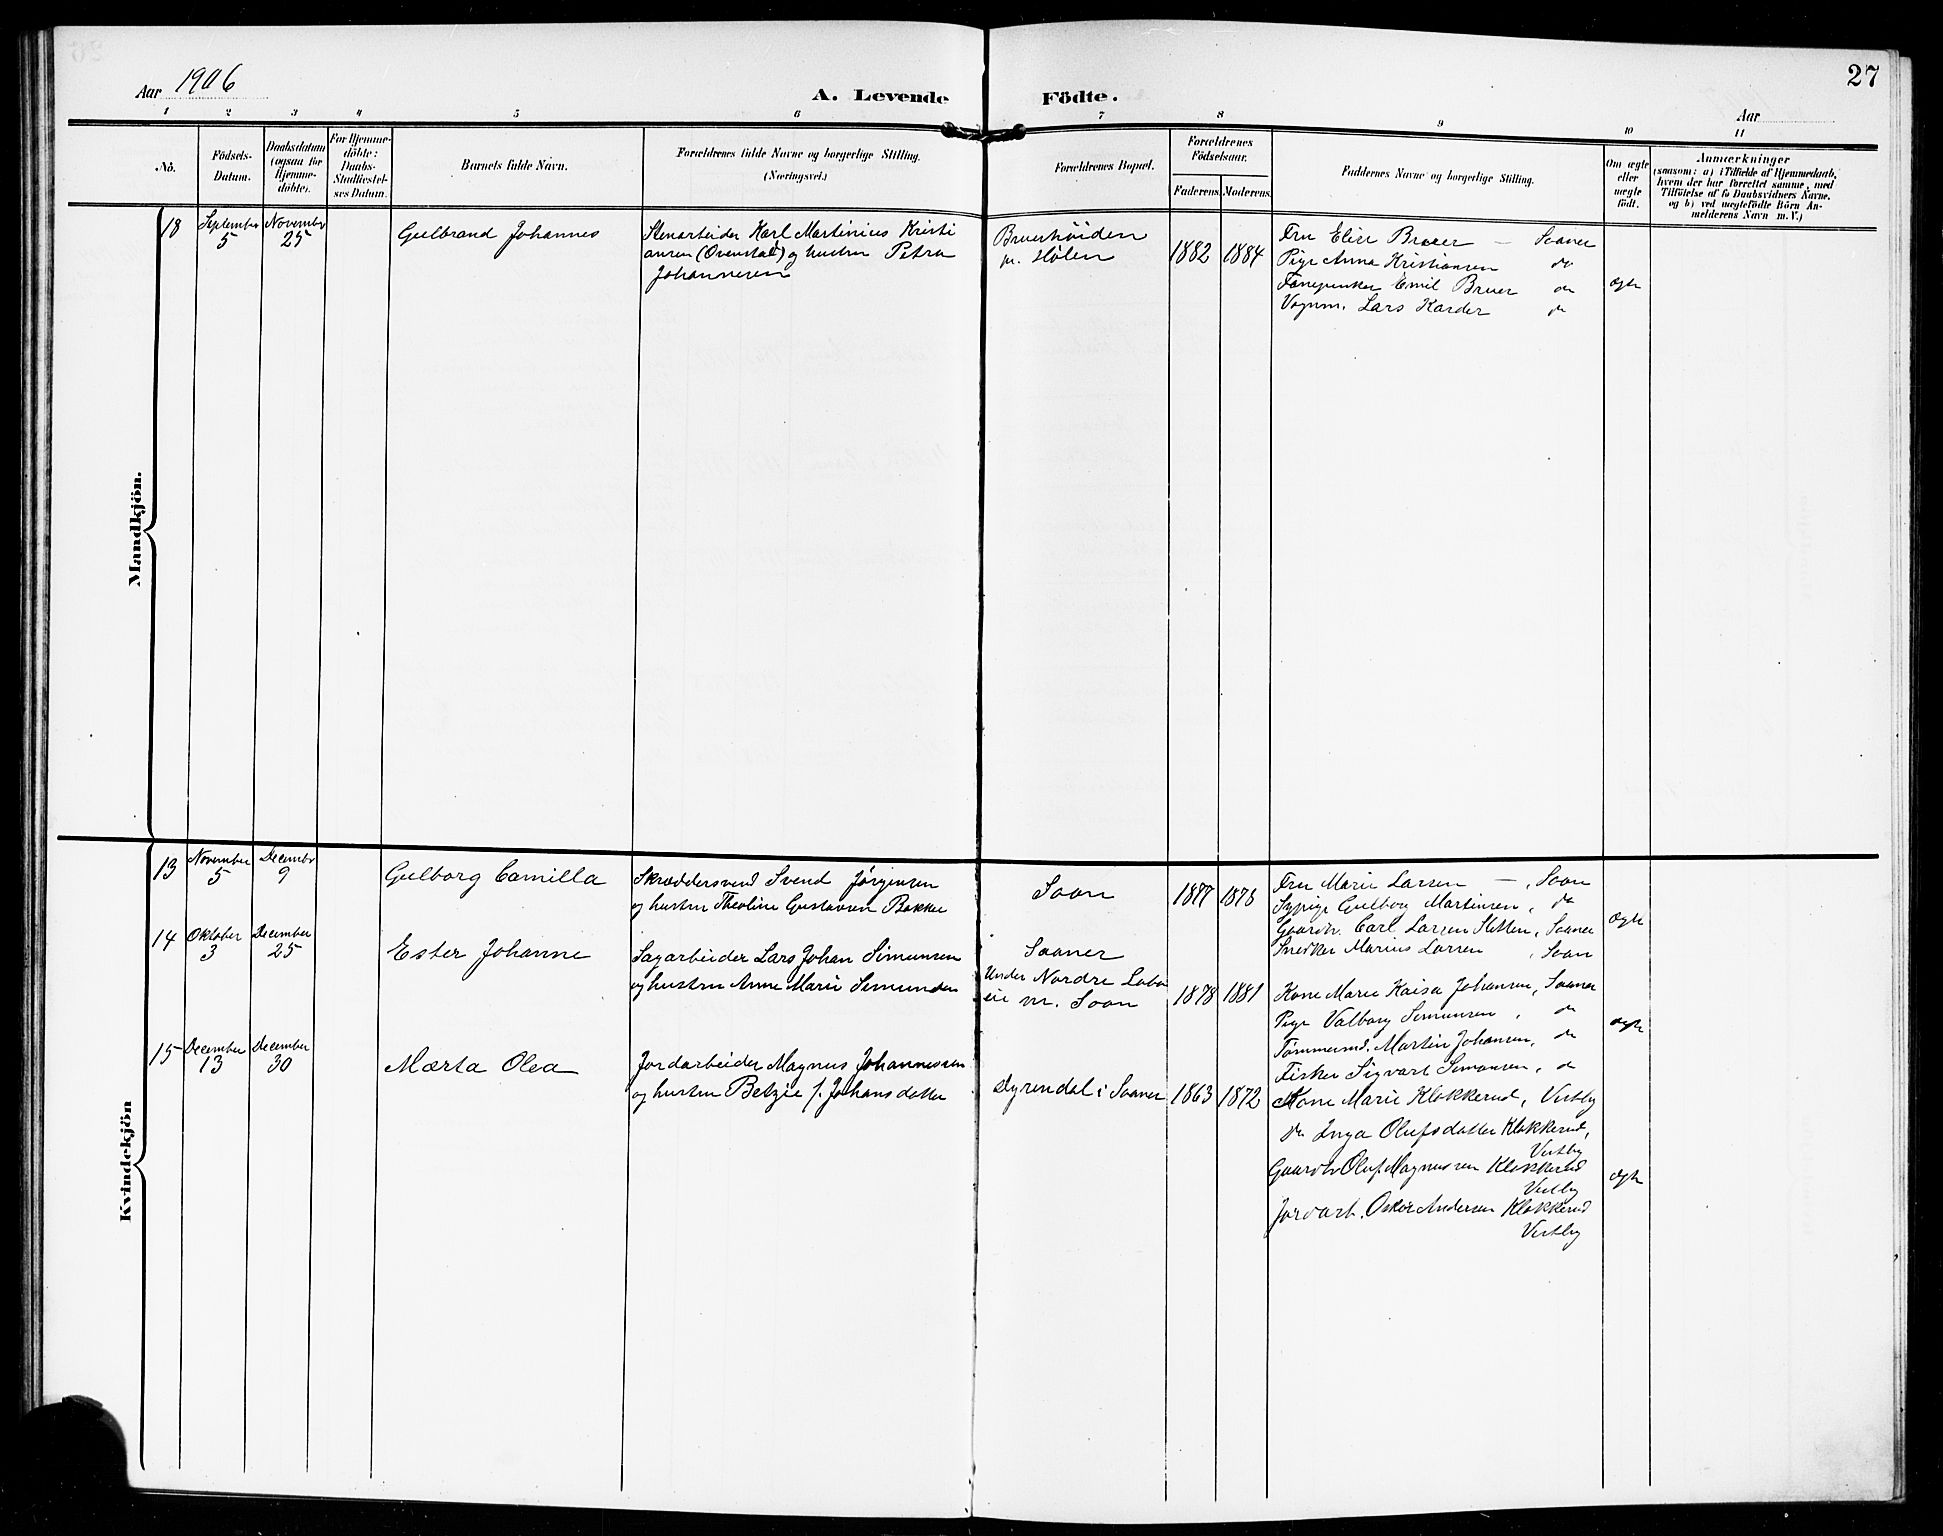 27
Aar 1906
A. Levende Födte.
Aar
1 2 3 4 5 6 7 8 9 10 11
No.
Födsels-
Datum.
Daabsdatum
(ogsaa for
Hjemme-
döbte).
For Hjemme-
döbte:
Daabs-
Stadfæstel-
ses Datum.
Barnets fulde Navn.
Forældrenes fulde Navne og borgerlige Stilling.
(Næringsvei.)
Forældrenes Bopæl.
Forældrenes
Födselsaar.
Faderens. Moderens.
Faddernes Navne og borgerlige Stilling.
Om ægte
eller
uægte
född.
Anmærkninger
(saasom: a) i Tilfælde af Hjemmedaab,
hvem der har forrettet samme, med
Tilföielse af to Daabsvidners Navne,
og b) ved uægtefödte Börn An-
melderens Navn m. V.)
Mandkjön.
18
September
5
November
25
Gulbrand Johannes
Stenarbeider Karl Martinius Kristi
ansen (Ovenstad) og hustru Petra
Johannesen
Bruerhöiden
pr. Hølen
1882 1884
Fru Elise Bruer — Saaner
Pige Anna Kristiansen do
Emil Bruer do
Vognm. Lars Karder do
Ægte
Kvindekjön
13
November
5
December
9
Gulborg Camilla
Skræddersvend Svend Jørgensen
og hustru Theoline Gustavsen Bakke
Soon
1877 1878
Fru Marie Larsen — , Soon
Sypige Gulborg Martinsen, do
Gaardbr. Carl Larsen Sletten, Saaner
Snedker Marius Larsen , Soon
Ægte
14
Oktober
3
December
25
Ester Johanne
Sagarbeider Lars Johan Simunsen
og hustru Anne Marie Simunsen
Saaner
Under Nordre Labo
eie pr. Soon
1878 1881
Kone Marie Kaisa Johansen, Saaner
Pige Valborg Simunsen , do
Tømmermd. Martin Johansen, do
Fisker Sigvart Simonsen, do
Ægte
15
December
13
December
30
Mærta Olea
Jordarbeider Magnus Johannessen
og hustru Betzie f. Johansdatter
Dyrendal i Saaner
1863 1872
Kone Marie Klokkerud, Vestby
do Inga Olufsdatter Klokkerud,
Vestby
Gaardbr Oluf Magnussen Klokkerud
Vestby
Jordarb. Oskar Andersen Klokkerud
Vestby
Ægte